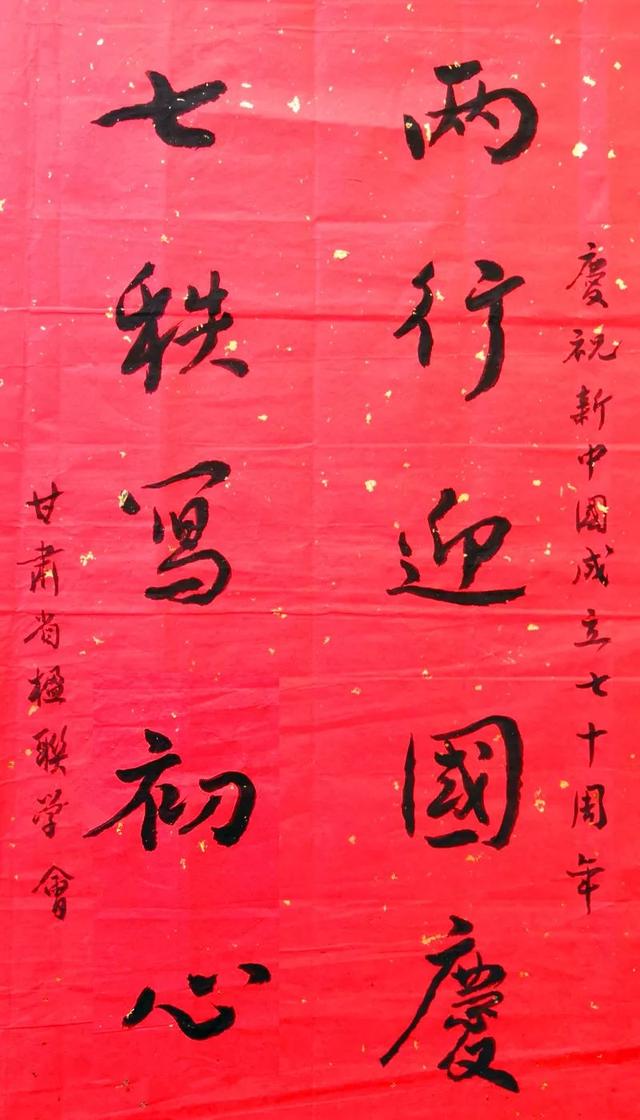 慶祝新中國成立七十周年
両行迎國慶
七秩寫初心
甘肅省楹聯学會